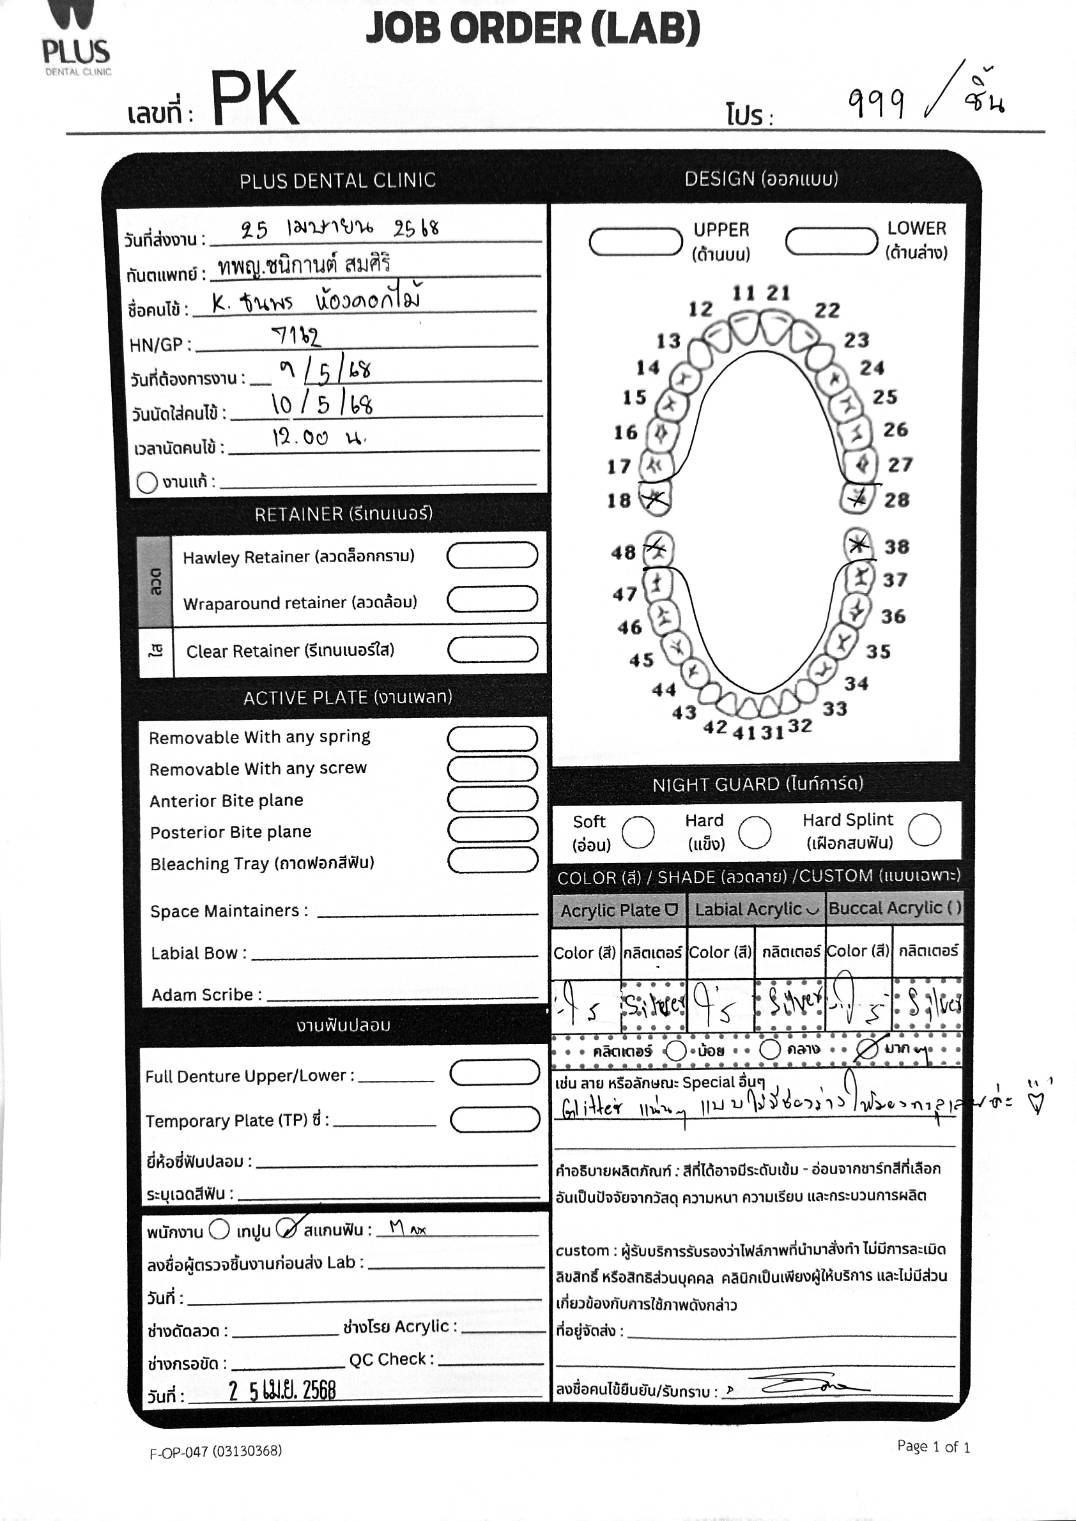 JOB ORDER (LAB)
PLUS
DENTAL CLINIC
เลขที่ : PK
โปร : 999 / ชิ้น
PLUS DENTAL CLINIC
วันที่ส่งงาน : 25 เมษายน 2568
ทันตแพทย์ : ทพญ.ชนิกานต์ สมศิริ
ชื่อคนไข้ : K. ธนพร ห้องดอกไม้
HN/GP : 7162
วันที่ต้องการงาน : 9/5/68
วันนัดใส่คนไข้ : 10/5/68
เวลานัดคนไข้ : 12.00 น.
งานแก้ :
RETAINER (รีเทนเนอร์)
ลวด
Hawley Retainer (ลวดล็อกกราม)
Wraparound retainer (ลวดล้อม)
ใส
Clear Retainer (รีเทนเนอร์ใส)
ACTIVE PLATE (งานเพลท)
Removable With any spring
Removable With any screw
Anterior Bite plane
Posterior Bite plane
Bleaching Tray (ถาดฟอกสีฟัน)
Space Maintainers :
Labial Bow :
Adam Scribe :
งานฟันปลอม
Full Denture Upper/Lower :
Temporary Plate (TP) ซี่ :
ยี่ห้อซี่ฟันปลอม :
ระบุเฉดสีฟัน :
พนักงาน เทปูน สแกนฟัน : Max
ลงชื่อผู้ตรวจชิ้นงานก่อนส่ง Lab :
วันที่ :
ช่างดัดลวด : ช่างโรย Acrylic :
ช่างกรอขัด : QC Check :
วันที่ : 2 5 เม.ย. 2568
DESIGN (ออกแบบ)
UPPER (ด้านบน)
LOWER (ด้านล่าง)
11 21
12 22
13 23
14 24
15 25
16 26
17 27
18 28
48 38
47 37
46 36
45 35
44 34
43 33
42 41 31 32
NIGHT GUARD (ไนท์การ์ด)
Soft (อ่อน)
Hard (แข็ง)
Hard Splint (เฝือกสบฟัน)
COLOR (สี) / SHADE (ลวดลาย) /CUSTOM (แบบเฉพาะ)
Acrylic Plate Labial Acrylic Buccal Acrylic ( )
Color (สี) กลิตเตอร์ Color (สี) กลิตเตอร์ Color (สี) กลิตเตอร์
Silver Silver Silver
กลิตเตอร์ น้อย กลาง มาก ๆ
เช่น ลาย หรือลักษณะ Special อื่นๆ
Glitter แน่นๆ แบบไม่มีช่องว่าง
คำอธิบายผลิตภัณฑ์ : สีที่ได้อาจมีระดับเข้ม - อ่อนจากชาร์ทสีที่เลือก
อันเป็นปัจจัยจากวัสดุ ความหนา ความเรียบ และกระบวนการผลิต
custom : ผู้รับบริการรับรองว่าไฟล์ภาพที่นำมาสั่งทำ ไม่มีการละเมิด
ลิขสิทธิ์ หรือสิทธิส่วนบุคคล คลินิกเป็นเพียงผู้ให้บริการ และไม่มีส่วน
เกี่ยวข้องกับการใช้ภาพดังกล่าว
ที่อยู่จัดส่ง :
ลงชื่อคนไข้ยืนยัน/รับทราบ :
F-OP-047 (03130368)
Page 1 of 1